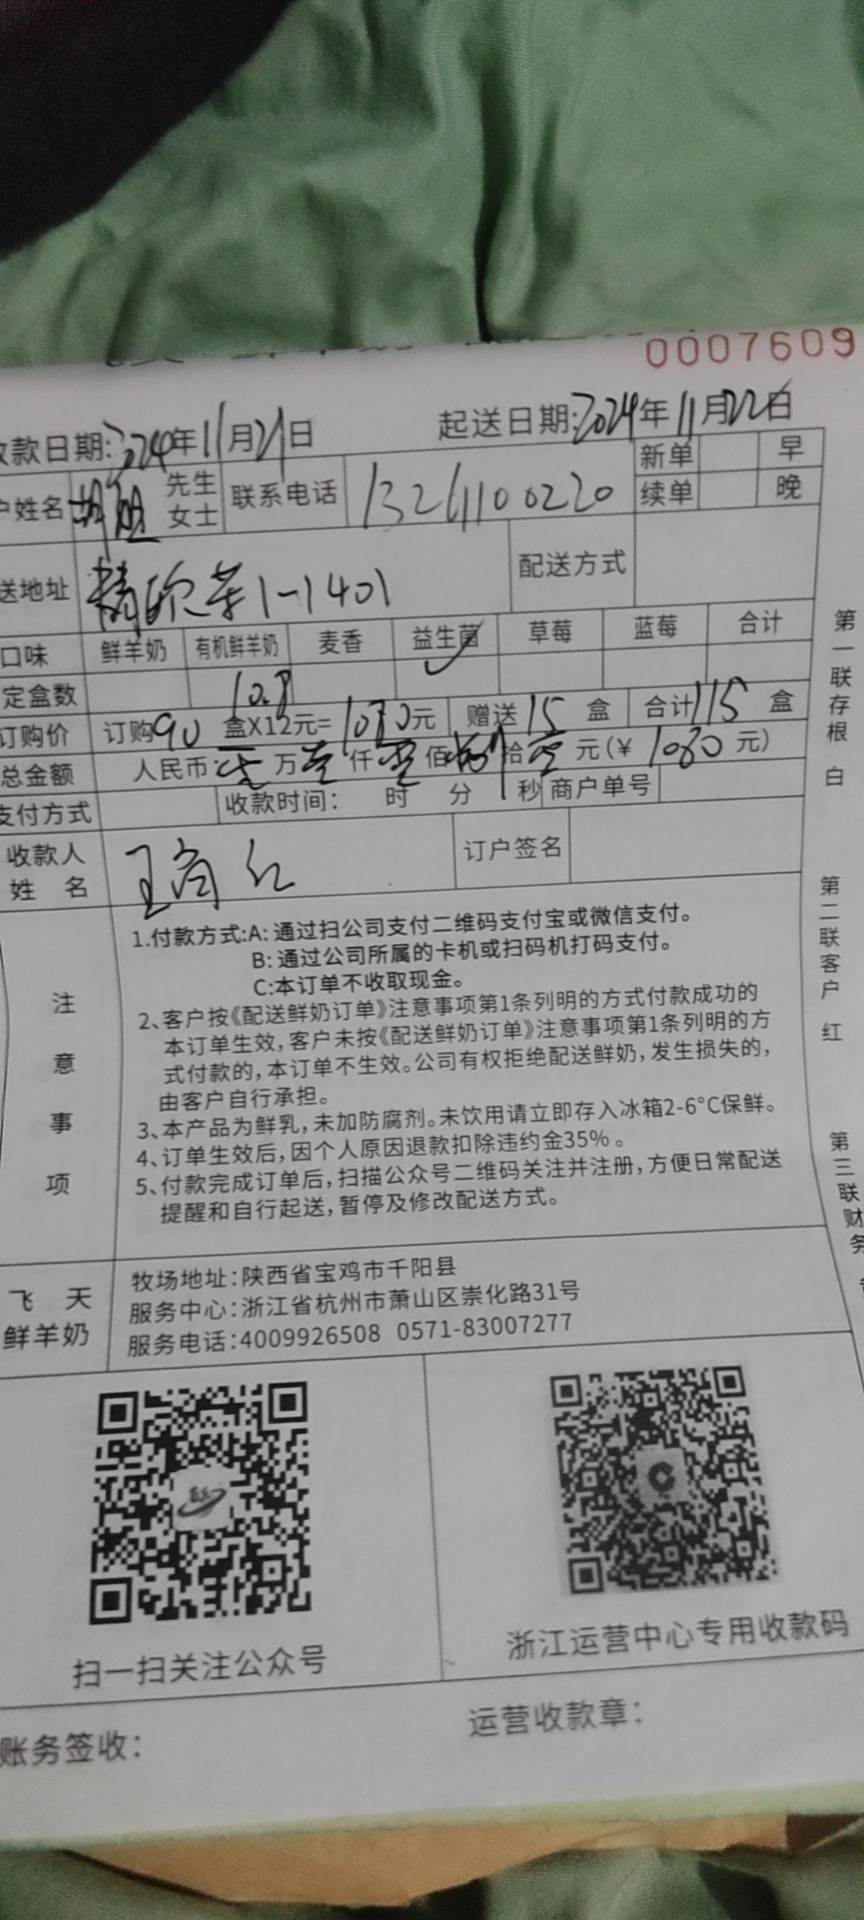 0007609
收款日期:2024年11月21日 起送日期:2024年11月22日
户姓名 胡姐 先生 女士 联系电话 13261100220 新单 早
续单 晚
送地址 1-1401 配送方式
口味 鲜羊奶 有机鲜羊奶 麦香 益生菌 草莓 蓝莓 合计
定盒数
订购价 订购90盒X12元=1080元 赠送15盒 合计115盒
10.8
总金额 人民币: 万壹仟零佰捌拾零元(¥1080元)
支付方式 收款时间: 时 分 秒 商户单号
收款人 姓名 王 红 订户签名
注意事项
1.付款方式:A:通过扫公司支付二维码支付宝或微信支付。
B:通过公司所属的卡机或扫码机打码支付。
C:本订单不收取现金。
2、客户按《配送鲜奶订单》注意事项第1条列明的方式付款成功的
本订单生效,客户未按《配送鲜奶订单》注意事项第1条列明的方
式付款的,本订单不生效。公司有权拒绝配送鲜奶,发生损失的,
由客户自行承担。
3、本产品为鲜乳,未加防腐剂。未饮用请立即存入冰箱2-6°C保鲜。
4、订单生效后,因个人原因退款扣除违约金35%。
5、付款完成订单后,扫描公众号二维码关注并注册,方便日常配送
提醒和自行起送,暂停及修改配送方式。
飞天
鲜羊奶
牧场地址:陕西省宝鸡市千阳县
服务中心:浙江省杭州市萧山区崇化路31号
服务电话:4009926508 0571-83007277
扫一扫关注公众号
浙江运营中心专用收款码
账务签收:
运营收款章:
第一联存根 白
第二联客户 红
第三联财务